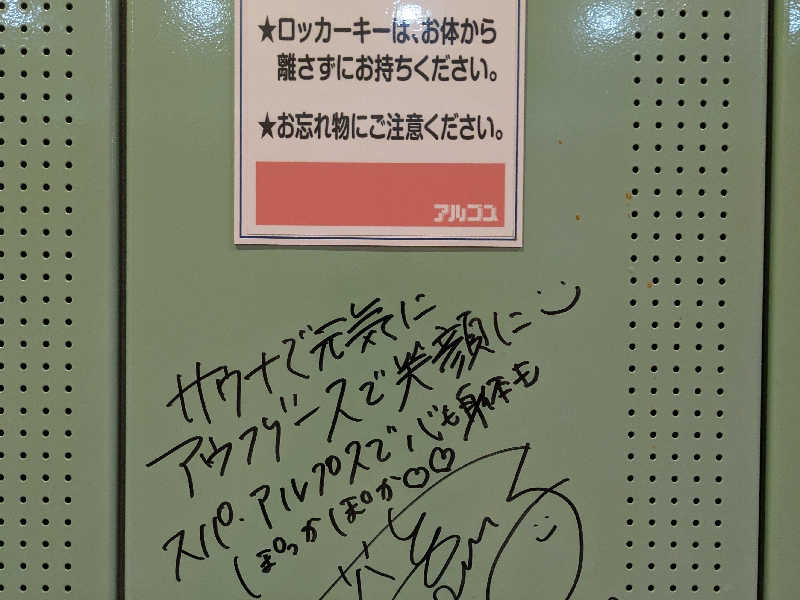 ★ロッカーキーは、お体から
離さずにお持ちください。
★お忘れ物にご注意ください。
アルゴス
サウナで元気に
アウフグースで笑顔に
スパ・アルプスで心も身体も
ぽっかぽか♡♡